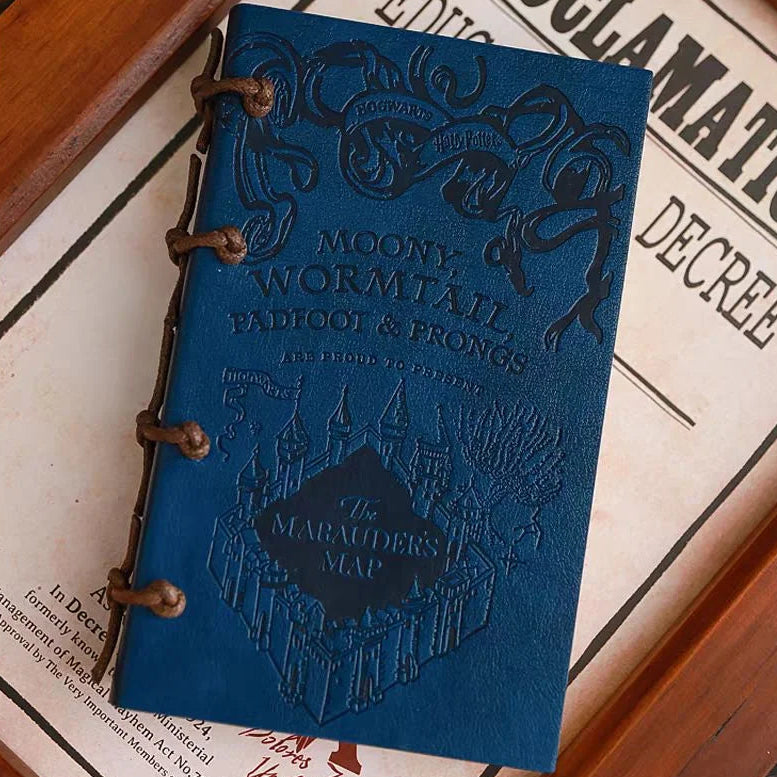 PROCLAMATIO
EDUC
DECREE
HOGWARTS
Harry Potter
MOONY,
WORMTAIL,
PADFOOT & PRONGS
ARE PROUD TO PRESENT
HOGWARTS
The
MARAUDER'S
MAP
As
In Decre
formerly know
anagement of Magical
Mayhem Act No.7
Approval by The Very Important Members o
Ministerial
24,
Dolores